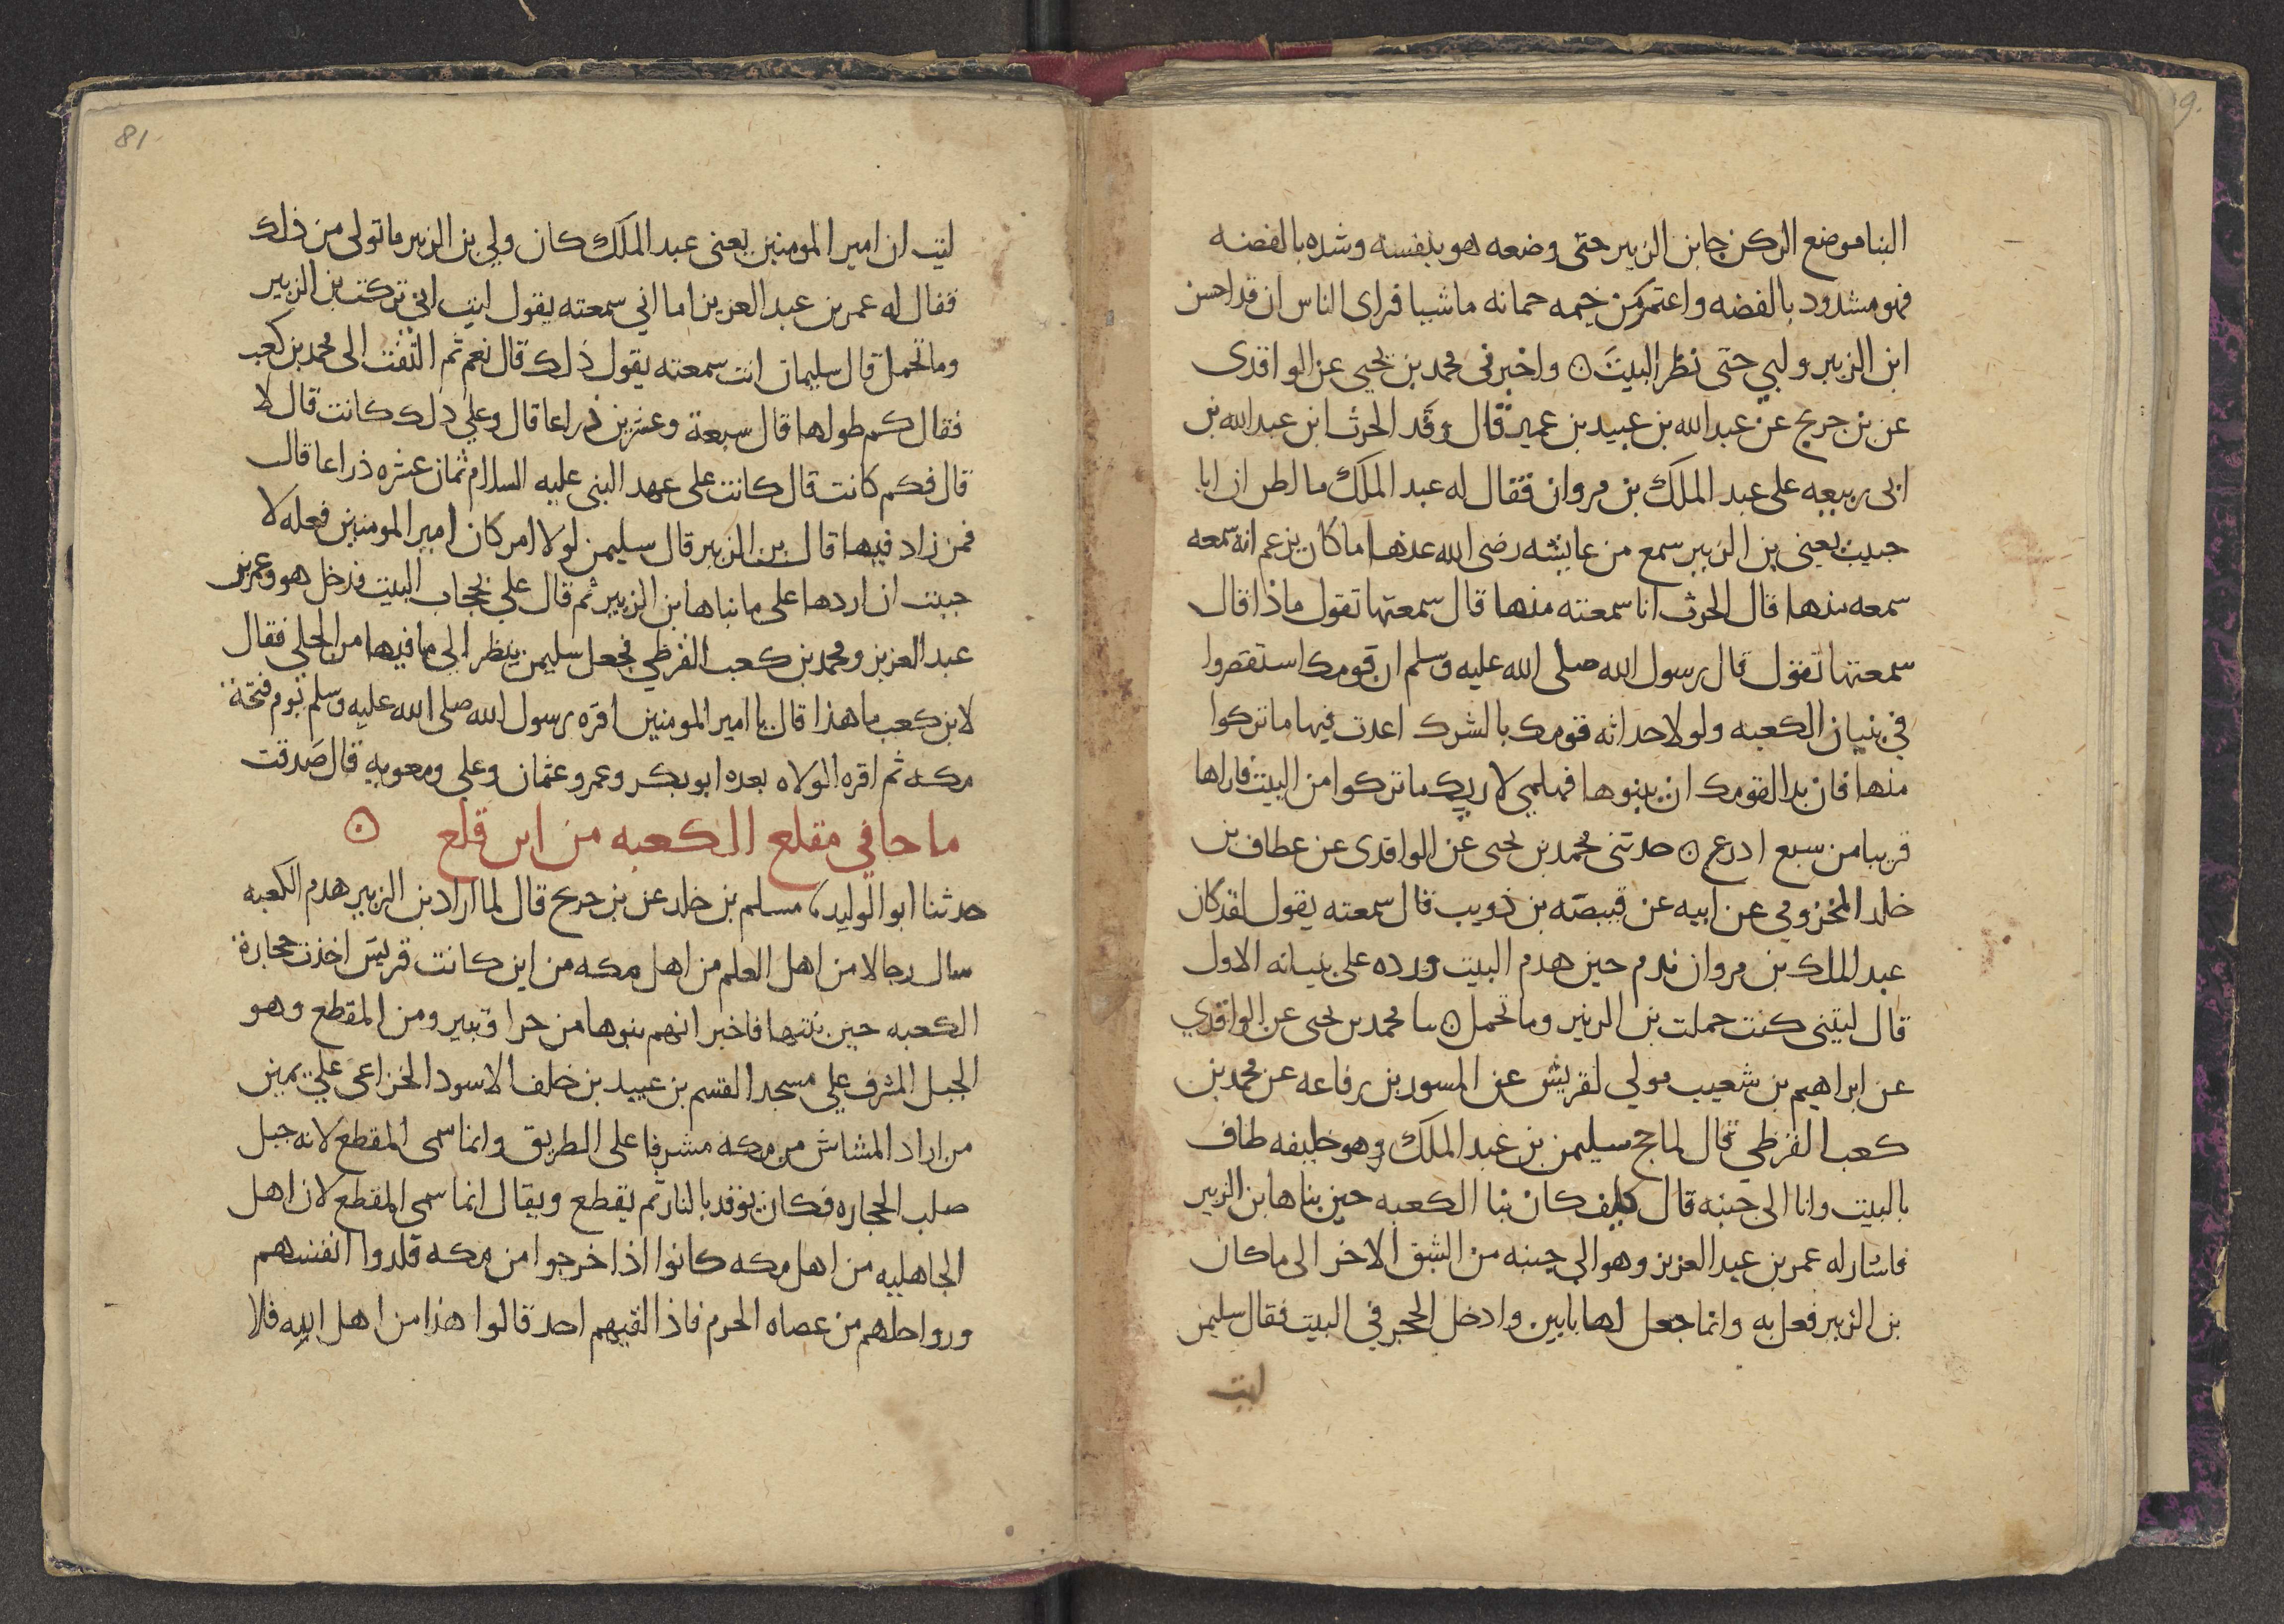 البنا موضع الركن جا بن الزبير حتى وضعه هو بنفسه وشده بالفضه
فهو مشدود بالفضه واعتمر من خيمه جمانه ماشيا فراى الناس ان قد احسن
ابن الزبير ولبي حتى نظر البيت ۞ واخبرني محمد بن يحيى عن الواقدى
عن بن جريج عن عبد الله بن عبيد بن عمير قال وفد الحرث ابن عبد الله بن
ابى ربيعه على عبد الملك بن مروان فقال له عبد الملك ما اظن ان ابا
خبيب يعنى بن الزبير سمع من عايشه رضى الله عنها ما كان يزعم انه سمعه
سمعه منها قال الحرث انا سمعته منها قال سمعتها تقول ماذا قال
سمعتها تقول قال رسول الله صلى الله عليه وسلم ان قومك استقصروا
في بنيان الكعبه ولولا حداثه قومك بالشرك اعدت فيها ما تركوا
منها فان بدا لقومك ان يبنوها فهلمي لاريك ما تركوا من البيت فاراها
قريبا من سبع ادرع ۞ حدثنى محمد بن يحيى عن الواقدى عن عطاف بن
خلد المخزومي عن ابيه عن قبيصه بن ذويب قال سمعته يقول لقد كان
عبد الملك بن مروان ندم حين هدم البيت ورده على بنيانه الاول
قال ليتنى كنت حملت بن الزبير وما تحمل ۞ نا محمد بن يحيى عن الواقدي
عن ابراهيم بن شعيب مولي لقريش عن المسور بن رفاعه عن محمد بن
كعب القرظي قال لما حج سليمن بن عبد الملك وهو خليفه طاف
بالبيت وانا الى جنبه قال كيف كان بنا الكعبه حين بناها بن الزبير
فاشار له عمر بن عبد العزيز وهو الى جنبه من الشق الاخر الى ما كان
بن الزبير فعل به وانما جعل لها بابين وادخل الحجر في البيت فقال سليمن
ليت
81
ليت ان امير المومنين يعنى عبد الملك كان ولي بن الزبير ما تولى من ذلك
فقال له عمر بن عبد العزيز اما اني سمعته يقول ليت انى تركت بن الزبير
وما تحمل قال سليمان انت سمعته يقول ذلك قال نعم ثم التفت الى محمد بن كعب
فقال كم طولها قال سبعة وعشرين ذراعا قال وعلي ذلك كانت قال لا
قال فكم كانت قال كانت على عهد النبى عليه السلام ثمان عشره ذراعا قال
فمن زاد فيها قال بن الزبير قال سليمن لولا امر كان امير المومنين فعله لا
حببت ان اردها على ما بناها بن الزبير ثم قال علي بحجاب البيت فدخل هو وعمر بن
عبد العزيز ومحمد بن كعب القرظي فجعل سليمن ينظر الى ما فيها من الحلي فقال
لابن كعب ما هذا قال يا امير المومنين اقره رسول الله صلى الله عليه وسلم يوم فتحة
مكه ثم اقره الولاه بعده ابو بكر وعمر وعثمان وعلى ومعويه قال صدقت
ما جا في مقلع الكعبه من اين قلع ۞
حدثنا ابو الوليد نا مسلم بن خلد عن بن جريج قال لما اراد بن الزبير هدم الكعبه
سال رجالا من اهل العلم من اهل مكه من اين كانت قريش اخذت حجارة
الكعبه حين بنتها فاخبر انهم بنوها من حرا وثبير ومن المقطع وهو
الجبل المشرف علي مسجد القسم بن عبيد بن خلف الاسود الخزاعى على يمين
من اراد المشاش من مكه مشرفا على الطريق وانما سمى المقطع لانه جبل
صلب الحجاره فكان يوقد بالنار ثم يقطع ويقال انما سمى المقطع لان اهل
الجاهليه من اهل مكه كانوا اذا خرجوا من مكه قلدوا انفسهم
ورواحلهم من عصاه الحرم فاذا لقيهم احد قالوا هذا من اهل الله فلا